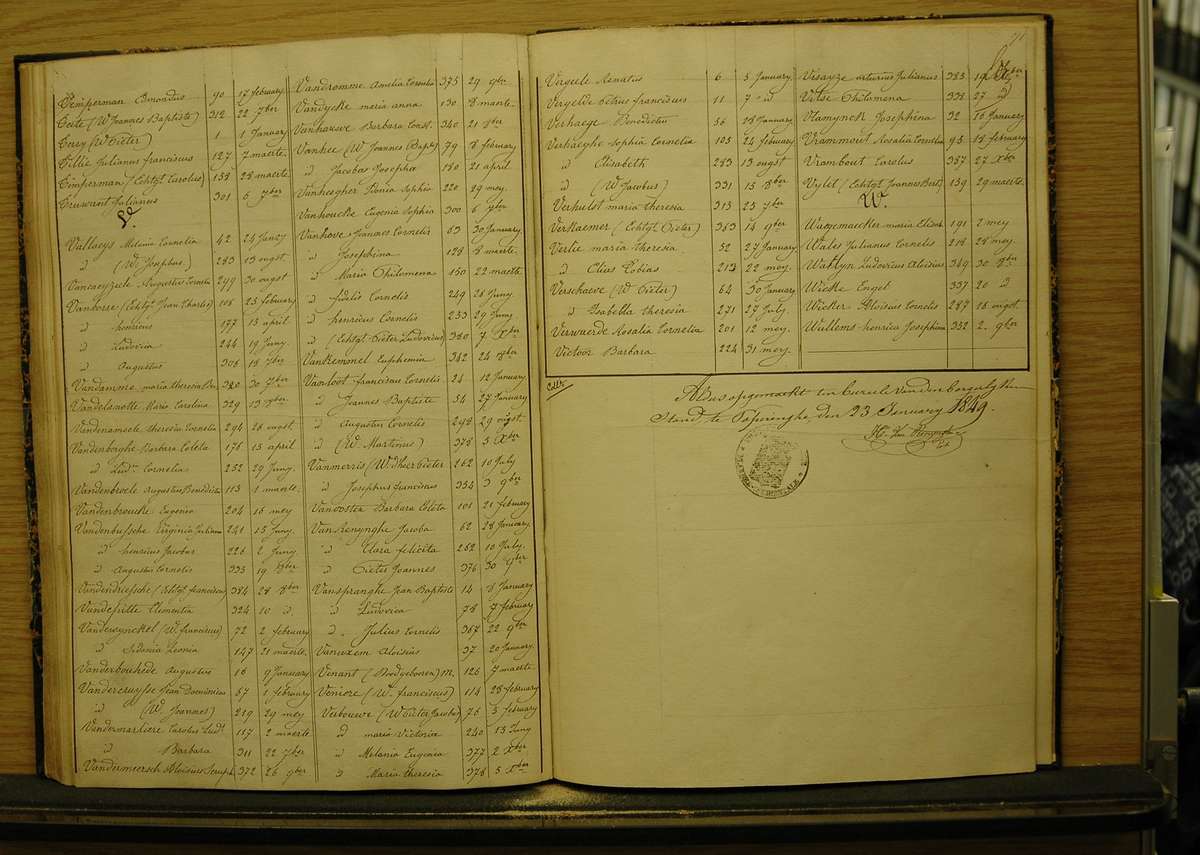 Temperman 90 17 february
Ceete (W Joannes Baptiste) 312 22 7ber
1 1 January
Tillie Julianus franciscus 127 7 maerte
Timperman (Echtgt Carolus) 138 28 maerte
Julianus 301 6 7ber
V.
Vallaeys Melanie Cornelia 42 24 January
d (W. Josephus) 283 13 ougst
Vancaeyzele Augustus Cornelis 299 30 ougst
(Echtgt Jean Charles) 108 25 february
d henricus 177 13 april
d Ludovica 244 19 Juny
d Augustus 308 18 7ber
Vandamme maria theresia 320 30 7ber
Vandelanotte Marie Carolina 329 13 8ber
Vandenameele theresia Cornelia 294 26 ougst
Vandenberghe Barbara Coleta 176 13 april
d Lud. Cornelia 252 29 Juny
Vandenbrocle augustus Benedictus 113 1 maerte
Vandenbroucke Eugenia 204 16 mey
Vandenbussche Virginia Juliana 241 15 Juny
d henricus Jacobus 226 2 Juny
d Augustus Cornelis 333 19 8ber
Vandendriessche (Echtgt franciscus) 384 28 8ber
Clementia 324 10 d
Vandewynckel (W. franciscus) 72 2 february
d Sidonia Leonia 147 21 maerte
Vanderbouhede Augustus 16 9 January
Vandercruysse Jean Dominicus 67 1 february
d (W Joannes) 219 29 mey
Vandermarliere Carolus Lud. 117 2 maerte
d Barbara 311 22 7ber
Vandermeersch Aloisius Seraph 372 26 9ber
Vandromme Amelia Cornelia 375 29 9ber
Vandycke maria anna 130 8 maerte
Vanhaewe Barbara Const. 340 21 8ber
Vanhee (W Joannes Bapte) 79 8 february
d Jacobus Josepha 180 21 april
Vanheegher Sidonia Sophia 220 29 mey
Vanhoucke Eugenia Sophia 300 6 7ber
Vanhove Joannes Cornelis 63 30 January
d Josephina 128 8 maerte
d Maria Philomena 150 22 maerte
d fidelis Cornelis 249 26 Juny
d henricus Cornelis 253 29 Juny
d (Echtgt Pieter Ludovicus) 380 7 Xber
Vankemmel Euphemia 342 24 8ber
Vanloot franciscus Cornelis 24 12 January
d Joannes Baptiste 54 27 January
d Augustus Cornelis 298 29 ougst
d (W. Martinus) 378 5 Xber
Vanmerris (W. dhier Pieter 262 10 July
d Josephus franciscus 354 3 9ber
Vanooster Barbara Coleta 101 21 february
Van Renynghe Jacoba 62 28 January
d Clara felicita 262 10 July
d Pieter Joannes 376 30 9ber
Vanspranghe Jean Baptiste 14 8 January
d Ludovica 78 7 february
d Julius Cornelis 367 22 9ber
Vanuxem Aloisius 37 20 January
Venant (Doodgeboren) M. 126 7 maerte
Veniere (W. franciscus) 114 28 february
Verbouwe (W Pieter Jacobus) 76 5 february
d maria Victoria 240 13 Juny
d Melania Eugenia 377 2 Xber
d Maria theresia 378 5 Xber
Vergeele Renatus 6 3 January
Vergelde Petrus franciscus 11 7 d
Verhaege Benedictus 56 28 January
Verhaeghe Sophia Cornelia 105 24 february
d Elisabeth 283 13 ougst
d (W Jacobus) 331 15 8ber
Verhulst maria theresia 313 25 7ber
VerRaemer (Echtgt Pieter) 363 14 9ber
Verlie maria theresia 52 27 January
d Elias Tobias 213 22 mey
Verschaeve (W Pieter) 64 30 January
d Isabella theresia 271 27 July
Verwaerde Rosalia Cornelia 201 12 mey
Victoor Barbara 224 31 mey
Visayze arturus Julianus 385 19 Xber
Vitse Philomena 338 27 d
Vlamynck Josephina 32 16 January
Vrammout Rosalia Cornelia 95 18 february
Vrambout Carolus 387 27 Xber
Vylet (Echtgt Joannes Bert) 139 29 maerte
W.
Wagemaecker maria Elisab 191 2 mey
Wales Julianus Cornelis 218 28 mey
Wattyn Ludovicus Aloisius 349 30 8ber
Wicke Engel 337 20 d
Wicker Aloisius Cornelis 287 16 ougst
Wullems henrica Josephina 352 2 9ber
Aldus opgemaekt ten Bureele van den borgerlyken
Stand, te Poperinghe den 23 January 1849.